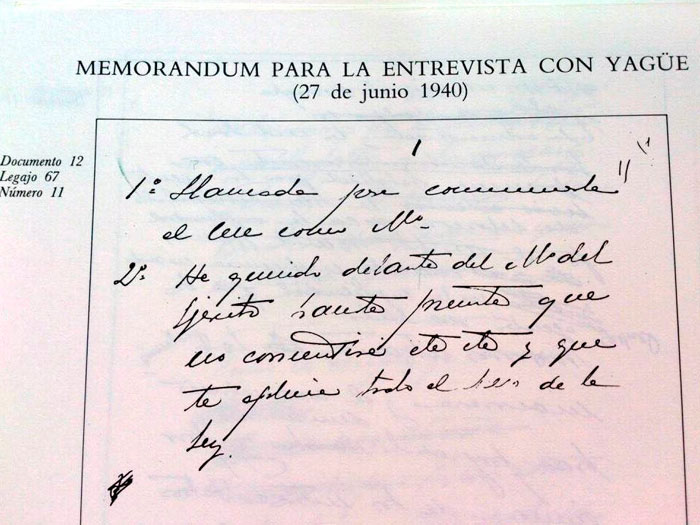 MEMORANDUM PARA LA ENTREVISTA CON YAGÜE
(27 de junio 1940)
Documento 12
Legajo 67
Número 11
1
1º Llamada por
el cese como Mº
2º He querido delante del M. del
Ejército
no consentiré etc etc y que
te aplicaré todo el peso de la
ley.